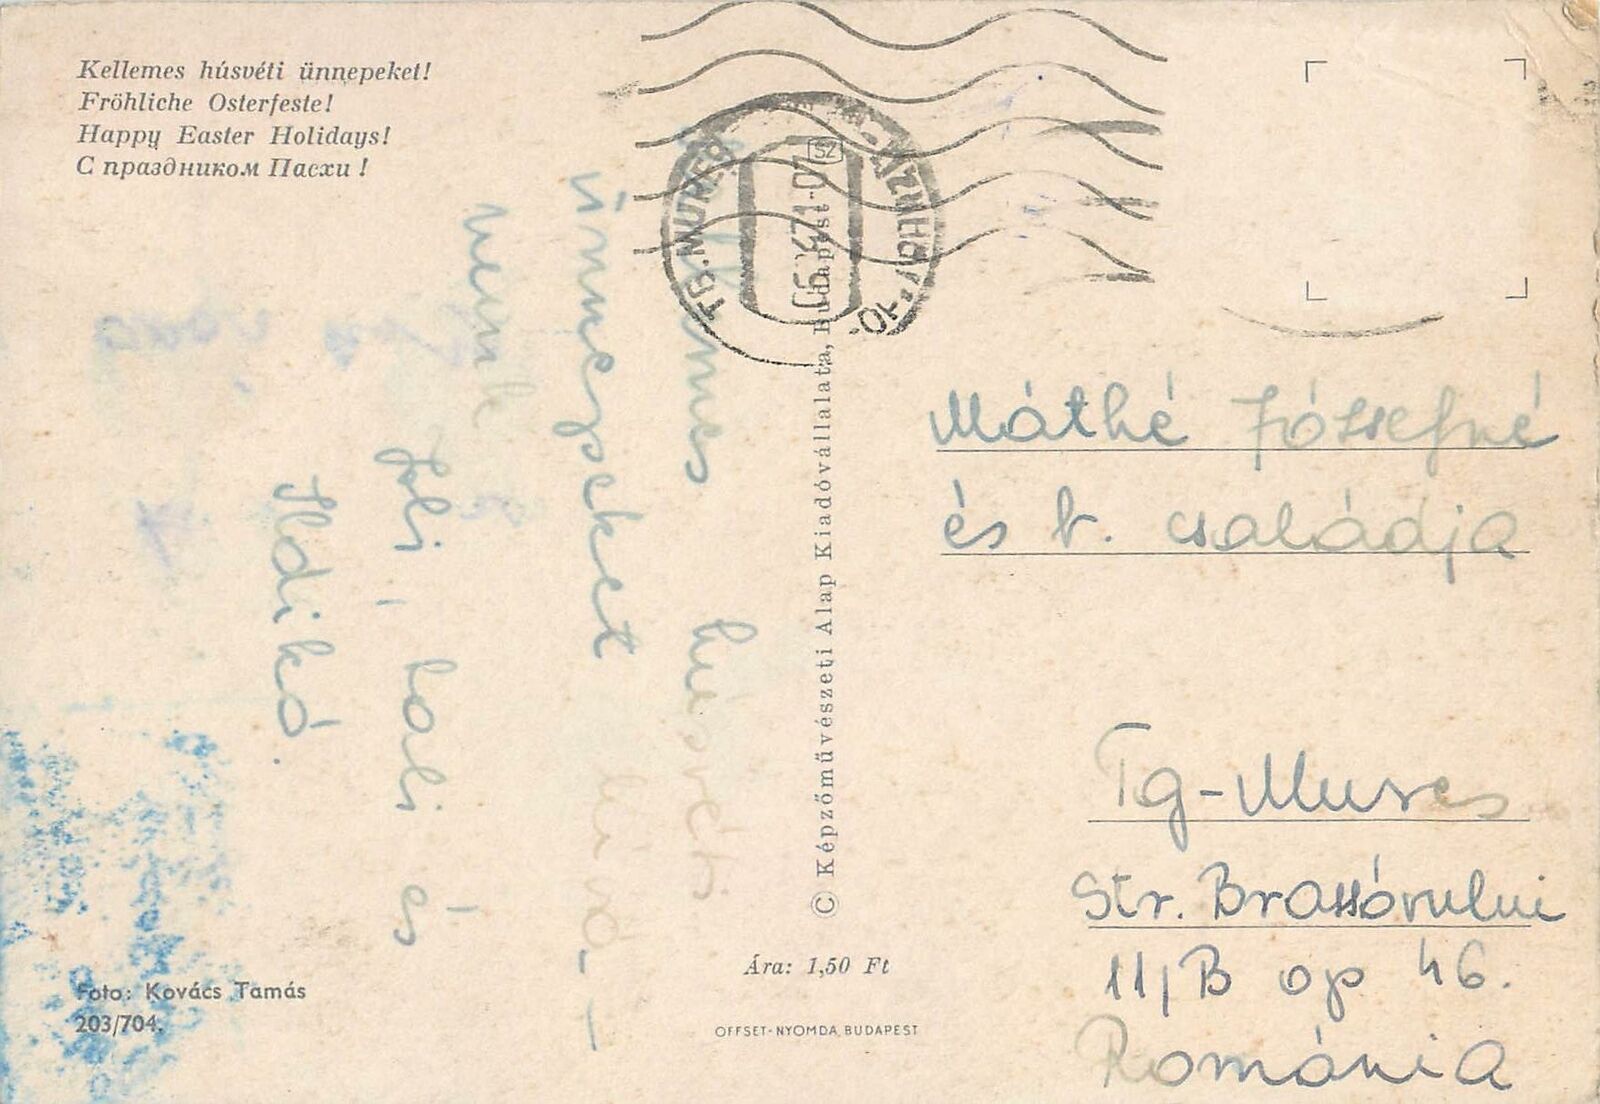 Kellemes húsvéti ünnepeket!
Fröhliche Osterfeste!
Happy Easter Holidays!
С праздником Пасхи!
TG. MURES
06.4.71-07
SZ
Kellemes húsvéti
ünnepeket kívá-
nunk
Joli, Lali és
Ildikó.
© Képzőművészeti Alap Kiadóvállalata, Budapest
Máthé Józsefné
és b. családja
Tg-Mures
Str. Brassóvului
11/B ap 46.
Románia
Ára: 1,50 Ft
Foto: Kovács Tamás
203/704.
OFFSET-NYOMDA, BUDAPEST